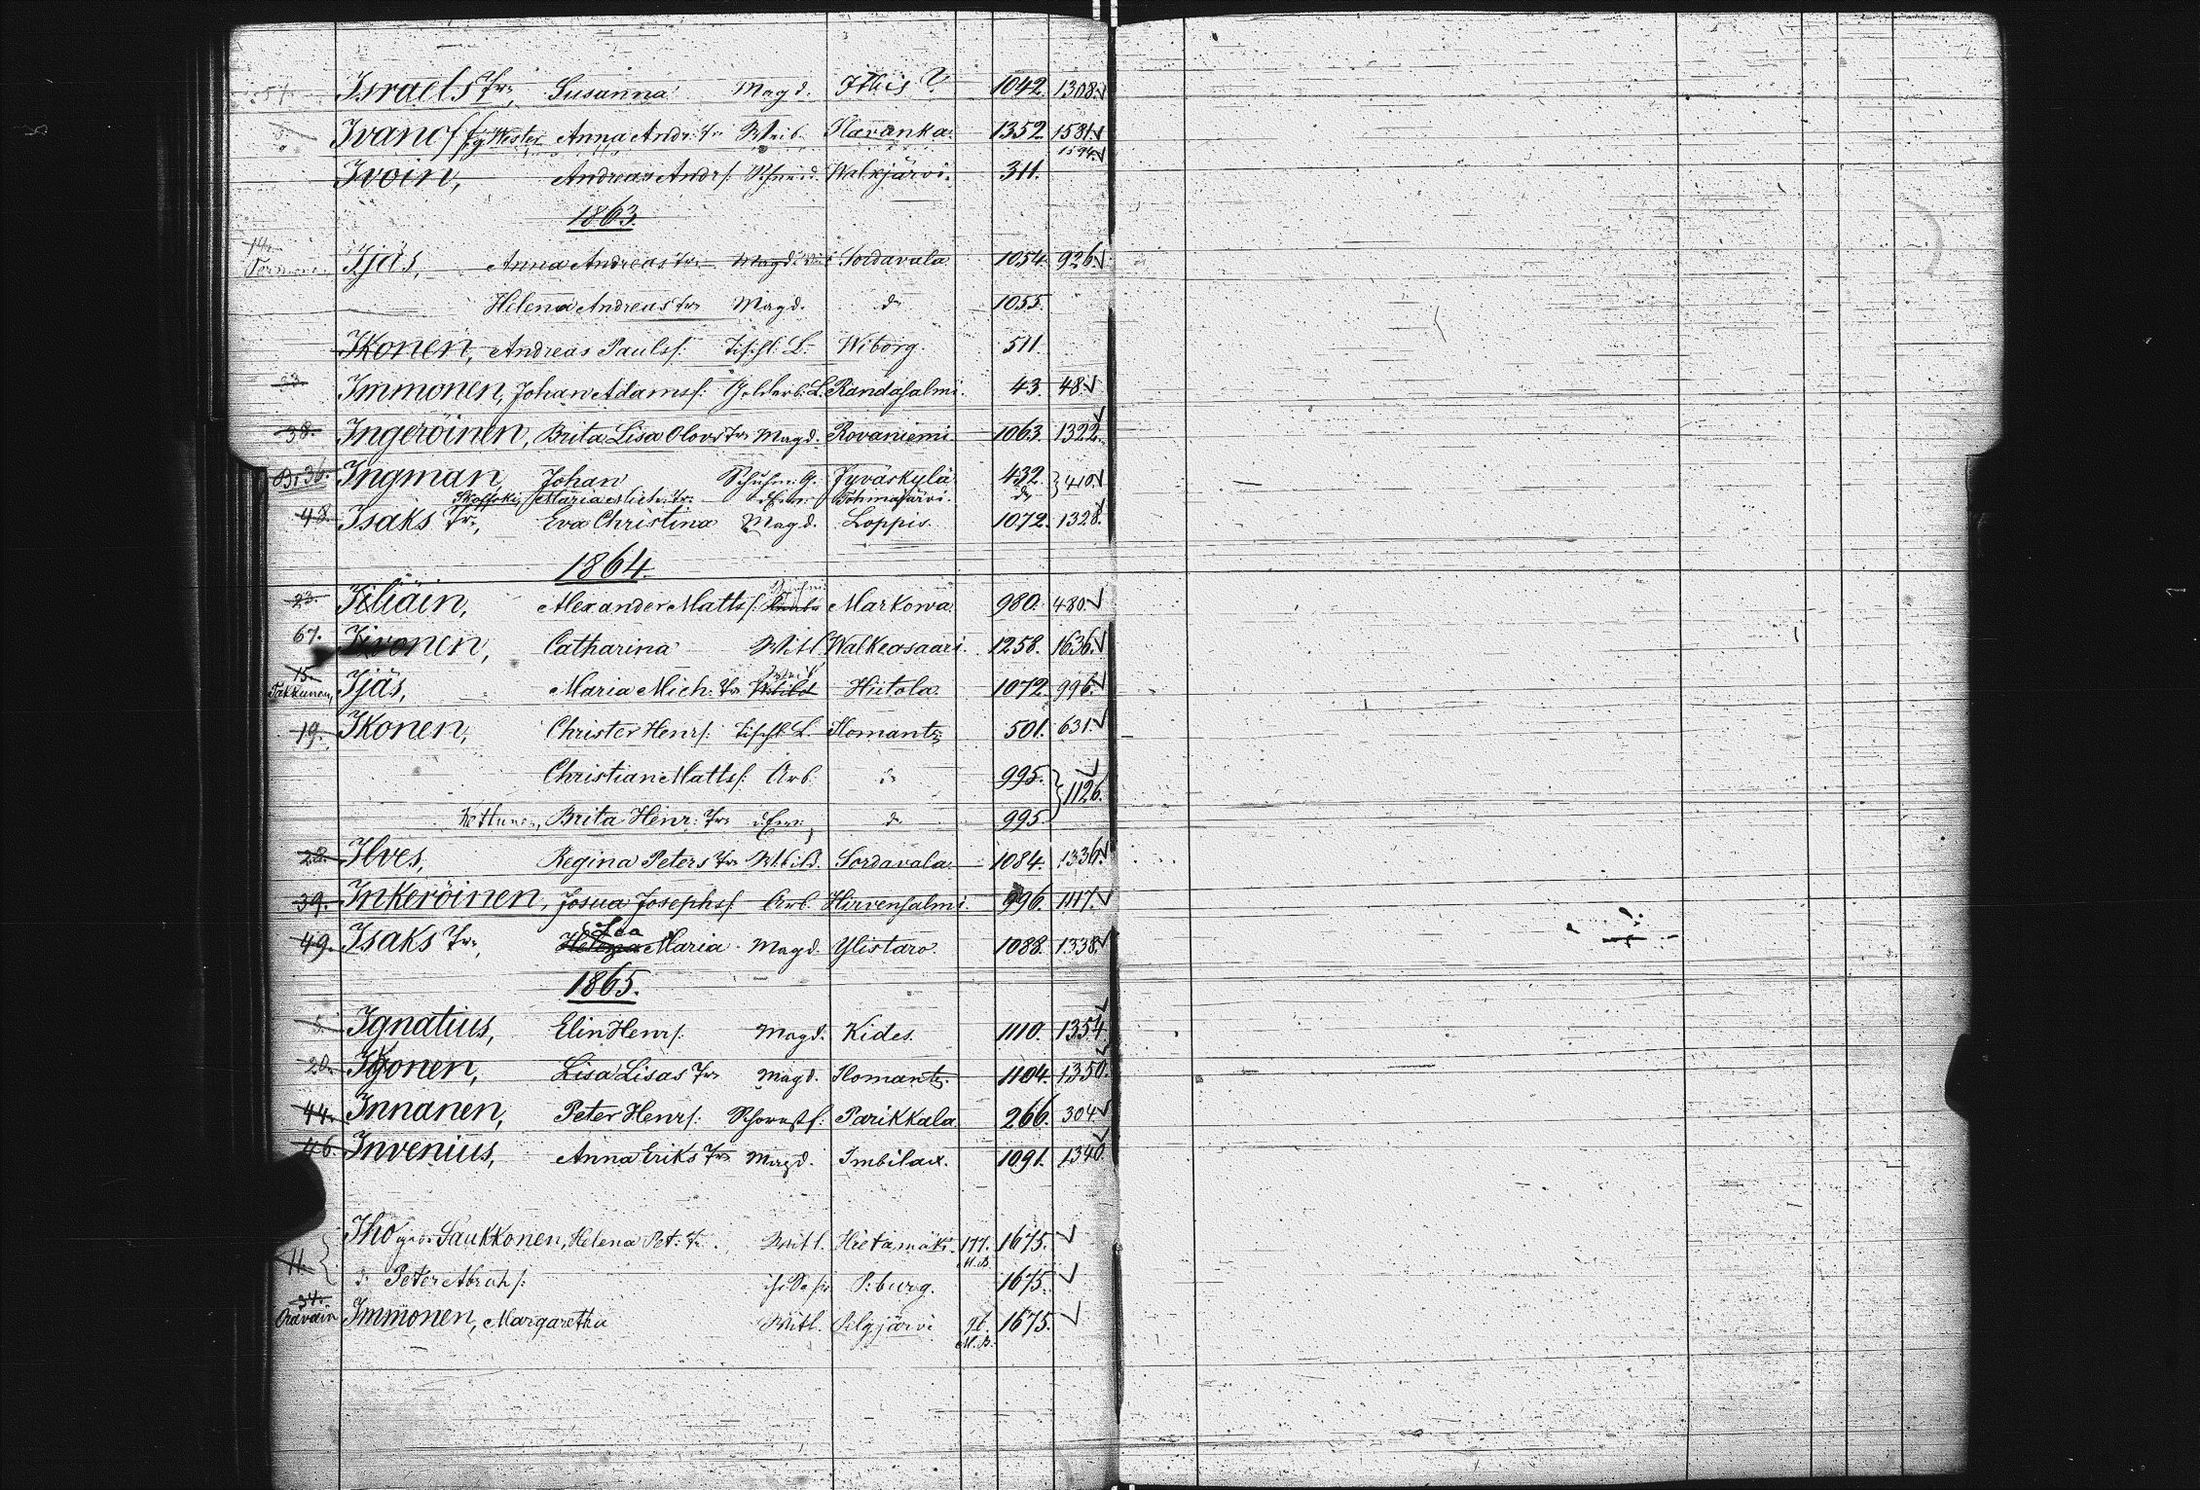 51. Israels Tr:, Susanna Magd. Ithis ? 1042. 1308.
Ivanoff, Anna Andr: Tr: Weib. Slavanka. 1352. 1581.
1594.
Ivoin, Andreas Andrs: Walkjärvi. 311.
1863.
14.
Ijäs, Anna Andreas Tr: Magd. Sordavala 1054. 926.
Helena Andreas Tr: Magd. do 1055.
Ikonen, Andreas Pauls: Tischl. L. Wiborg. 511.
23. Immonen, Johan Adams: L. Randasalmi. 43. 48.
38. Ingeröinen, Brita Lisa Olovs Tr: Magd. Rovaniemi 1063. 1322.
Br 36. Ingman, Johan Schuhm: G. Jyväskylä 432. 410.
Maria Mich: Tr: Tohmajärvi. do
48. Isaks Tr:, Eva Christina Magd. Loppis. 1072. 1328.
1864.
23. Iiliäin, Alexander Matts: Markowa 980. 480.
67. Iivonen, Catharina Witl. Walkeasaari. 1258. 1636.
15.
Takkunen, Ijäs, Maria Mich: Tr: Hiitola. 1072. 996.
19. Ikonen, Christer Henrs: Tischl. L. Ilomants 501. 631.
Christian Matts: Arb. do 995. 1126.
Kettunen, Brita Henr: Tr: do 995.
28. Ilves, Regina Peters Tr: Sordavala. 1084. 1336.
39. Inkeröinen, Josua Josephs: Arb. Hirvensalmi. 996. 1117.
Ida
49. Isaks Tr:, Helena Maria Magd. Ylistaro. 1088. 1338.
1865.
5. Ignatius, Elin Henrs: Magd. Kides. 1110. 1354.
20. Ikonen, Lisa Lisas Tr: Magd. Ilomants. 1104. 1350.
44. Innanen, Peter Henrs: Schornstf: Parikkala 266. 304.
46. Invenius, Anna Eriks Tr: Magd. Imbilax. 1091. 1340.
Iho Saukkonen, Helena Pet: Tr: Witl. Hietamäki. 177. 1675.
M.B.
11. do Peter Abrah s: P:burg. 1675.
34.
Immonen, Margaretha Witl. Pilgjärvi 96. 1675.
M.B.